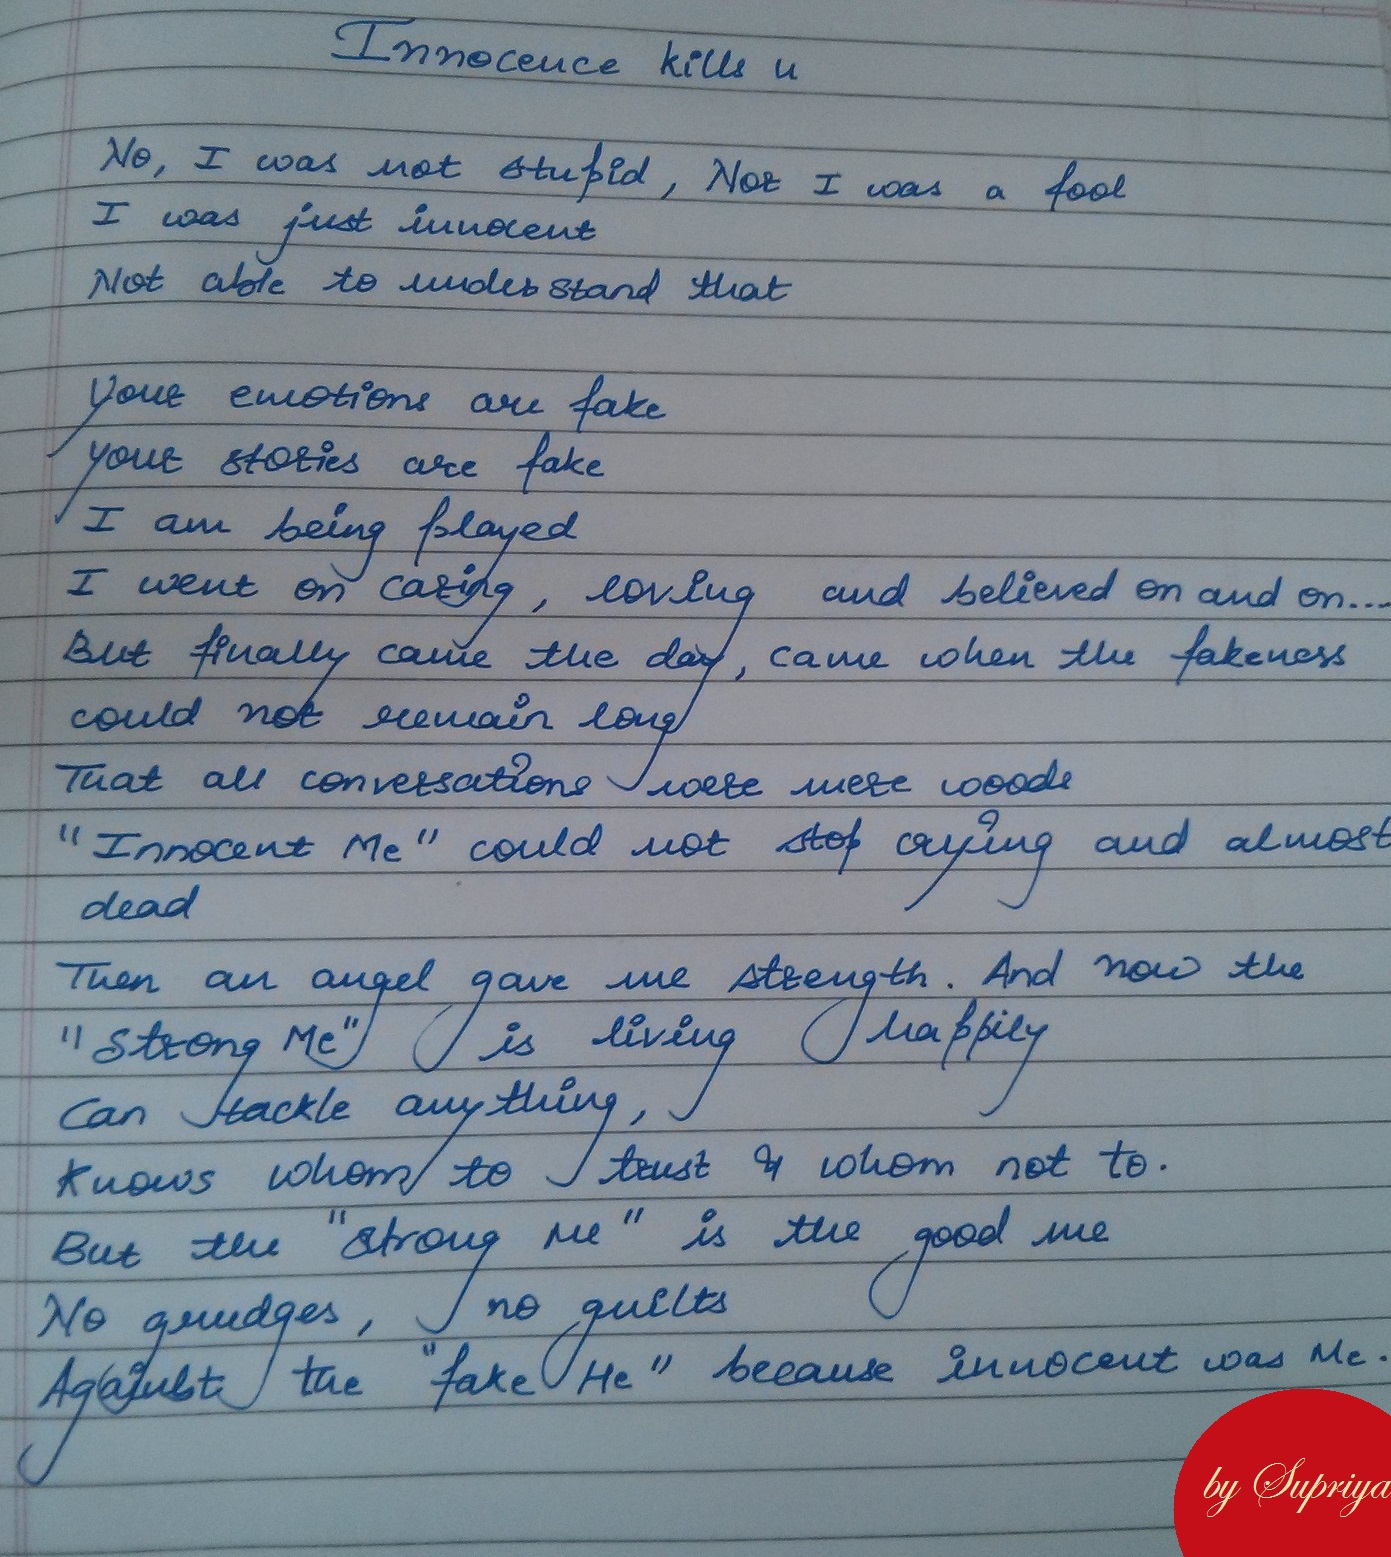 Innocence kills u
No, I was not stupid, Nor I was a fool
I was just innocent
Not able to understand that
Your emotions are fake
Your stories are fake
I am being played
I went on caring, loving and believed on and on...
But finally came the day, came when the fakeness
could not remain long
That all conversations were mere woods
"Innocent Me" could not stop crying and almost
dead
Then an angel gave me strength. And now the
"Strong Me" is living happily
Can tackle anything,
Knows whom to trust & whom not to.
But the "Strong Me" is the good me
No grudges, no guilts
Against the "fake He" because innocent was Me.
by Supriya